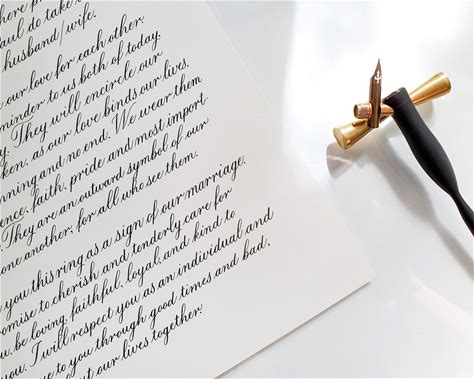 here p
Paul do take
husband/wife.
our love for each other.
minder to us both of today.
They will encircle our
ken, as our love binds our lives.
nning and no end. We wear them
ence, faith, pride and most import-
They are an outward symbol of our
one another, for all who see them.
you this ring as a sign of our marriage.
omise to cherish and tenderly care for
u, be loving, faithful, loyal, and kind to
you. I will respect you as an individual and
e to you through good times and bad,
ut our lives together.